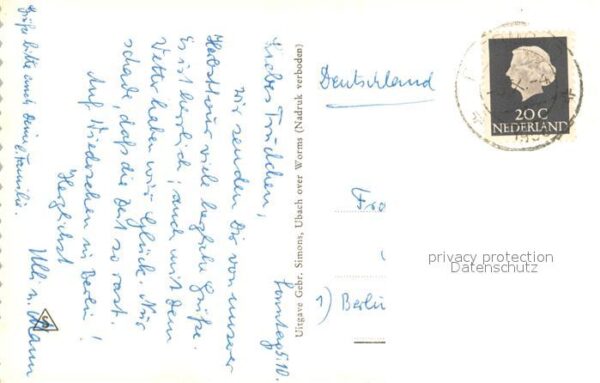 Sonntag 5.10.
Liebes Trudchen,
wir senden Dir von unserer
Herbsttour viele herzliche Grüße.
Es ist herrlich, auch mit dem
Wetter haben wir Glück. Nur
schade, daß die Zeit so rast.
Auf Wiedersehen in Berlin!
Herzlichst
Ulli u.
Grüße bitte auch deine Familie.
Uitgave Gebr. Simons, Ubach over Worms (Nadruk verboden)
Deutschland
20 C
NEDERLAND
1) Berlin
privacy protection
Datenschutz